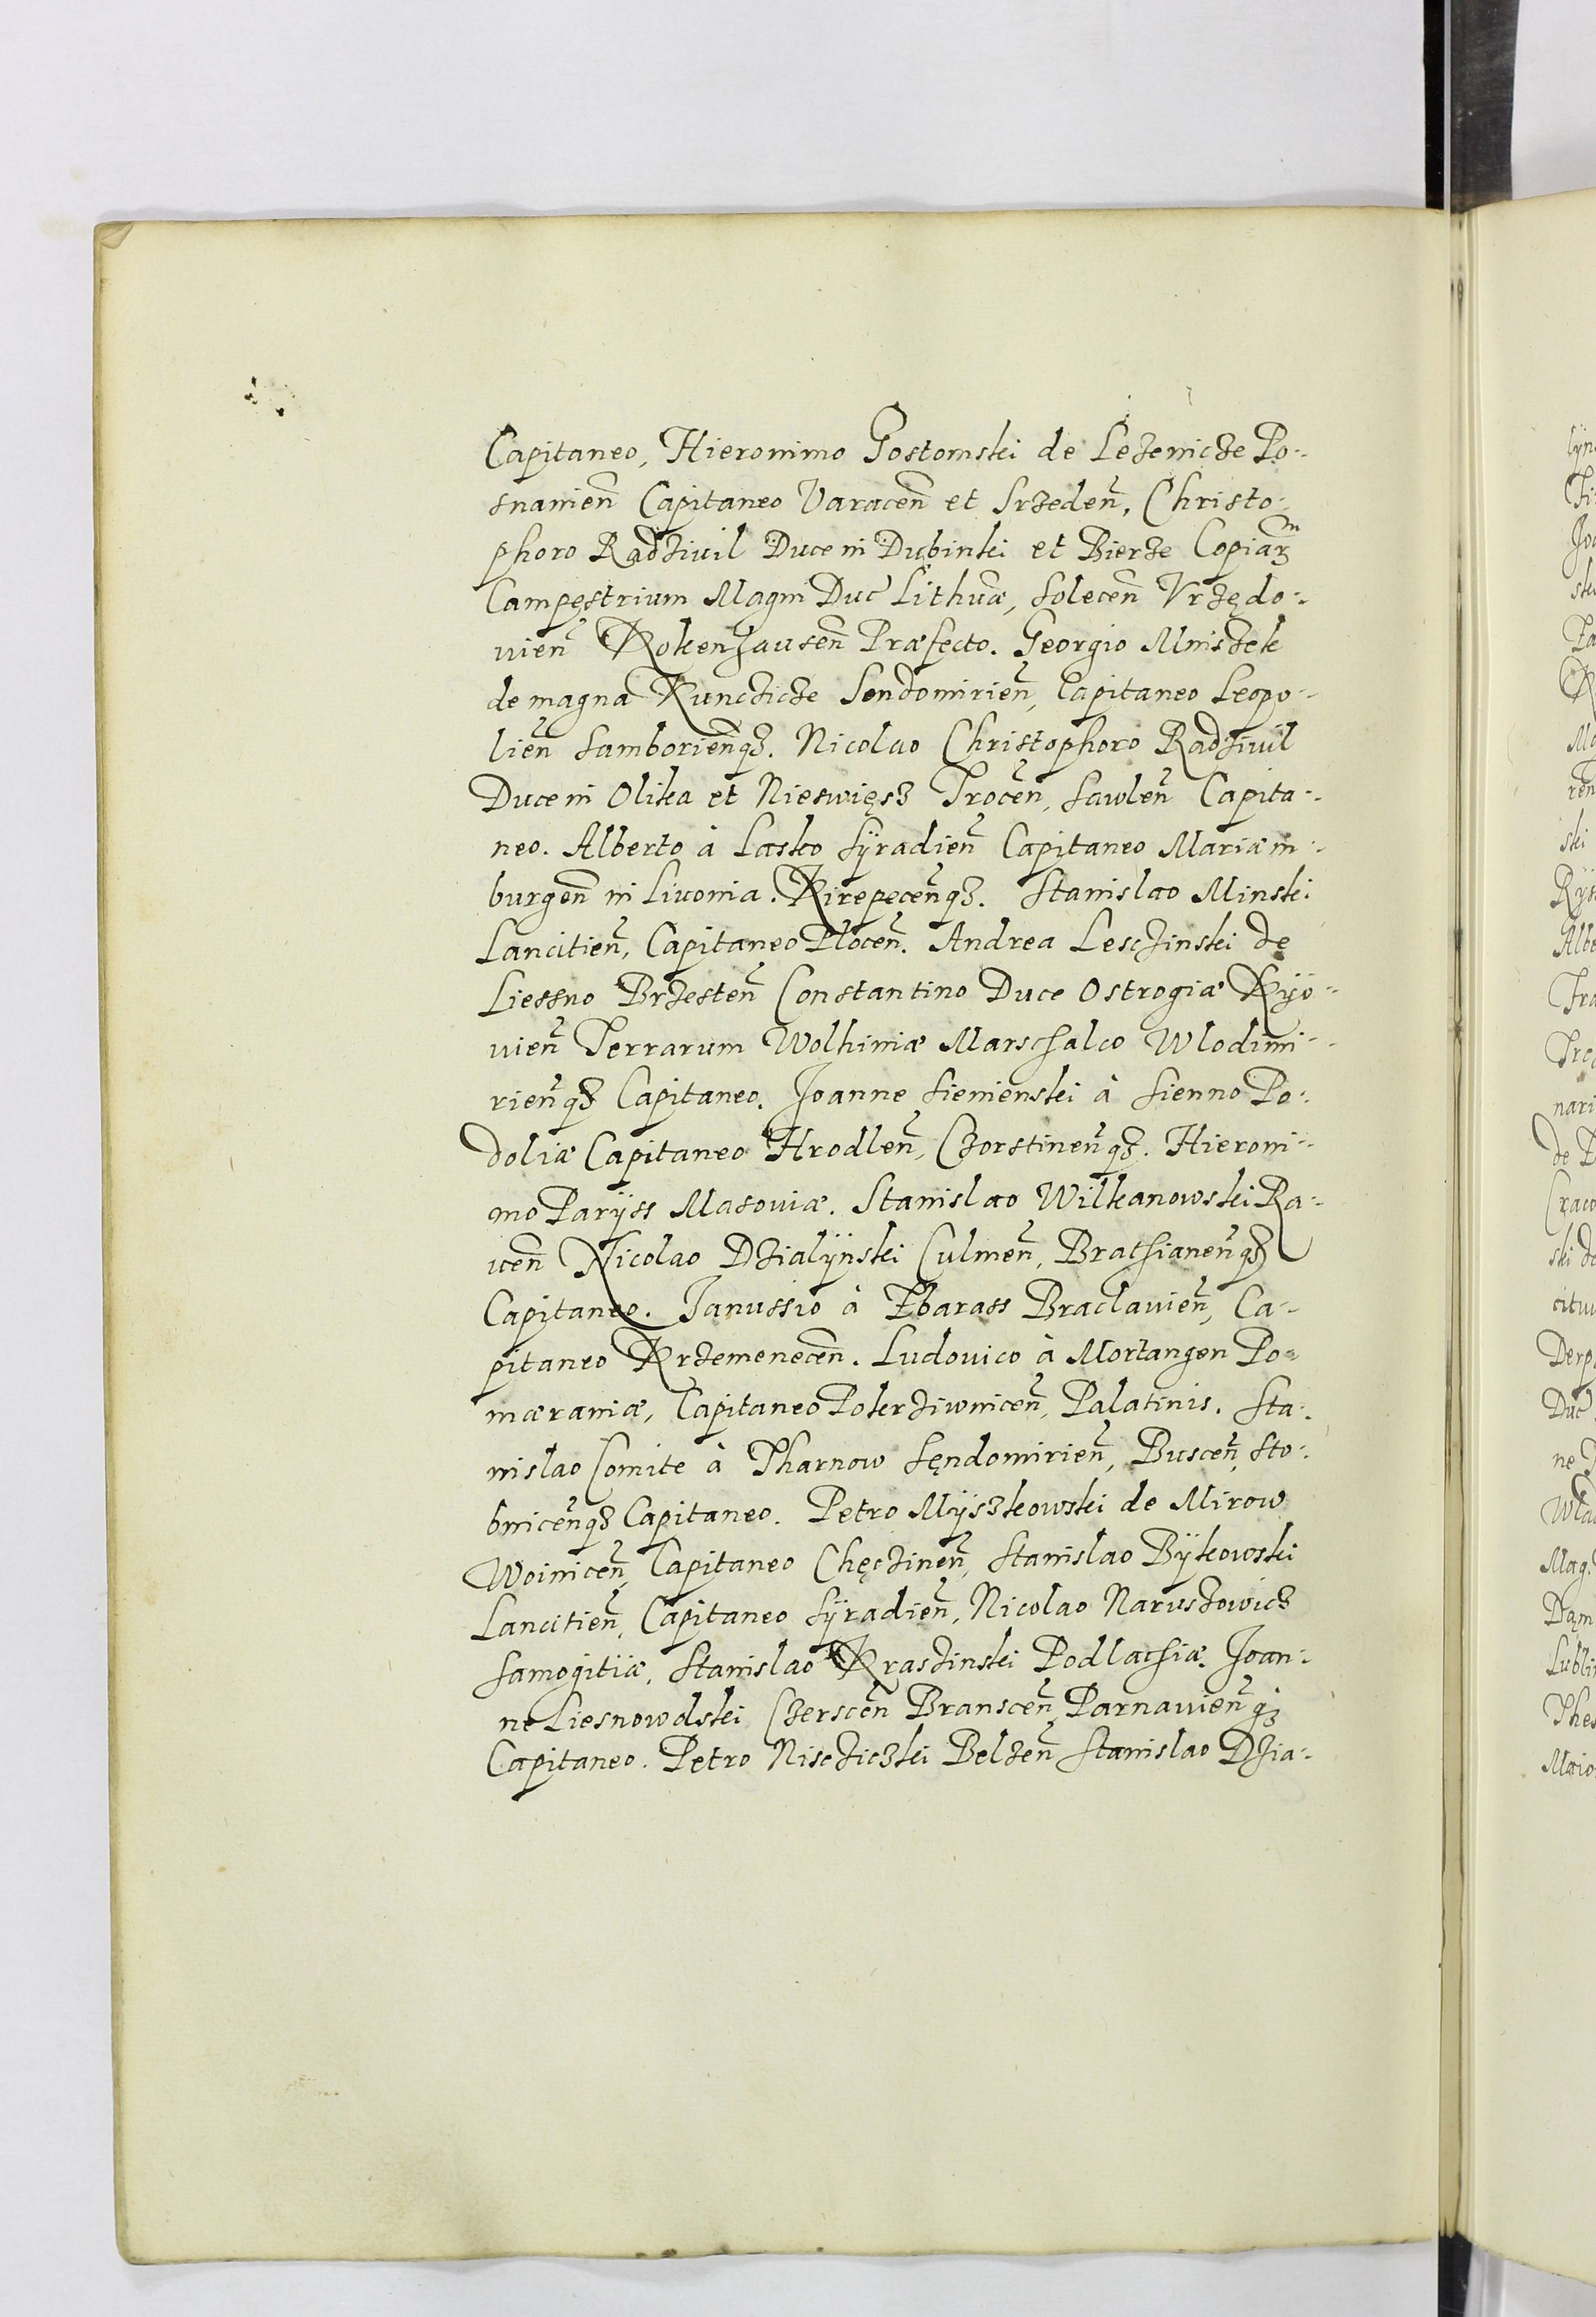 Capitaneo, Hieronimo Gostomski de Leżenicze Po-
snanień Capitaneo Varaceń et Srzedeń, Christo-
phoro Radziuil Duce in Dubinki et Bierze Copiarꝫ
Campęstrium Magni Duc Lithuæ, Soleceń Vrzędo-
uień Kokenhauseń Præfecto. Georgio Mniszek
de magna Kunczicze Sendomirień, Capitaneo Leopo-
lień Samborieńqꝫ. Nicolao Christophoro Radziuil
Duce in Olika et Nieswięsz Troceń, Sawleń Capita-
neo. Alberto à Lasko Sÿradień Capitaneo Mariæm-
burgeń in Liuonia. Kirepeceńqꝫ. Stanislao Minski
Lancitień, Capitaneo Ploceń. Andrea Lesczinski de
Liessno Brzesteń Constantino Duce Ostrogiæ Kÿo-
uień Terrarum Wolhiniæ Marschalco Wlodimi-
rieńqꝫ Capitaneo. Joanne Sienienski à Sienno Po-
doliæ Capitaneo Hrodleń, Czorstineńqꝫ. Hieroni-
mo Parÿss Masouiæ. Stanislao Wilkanowski Ra-
uceń Nicolao Dzialÿnski Culmeń, Brathianeńqꝫ
Capitaneo. Janussio à Zbarass Braclauień, Ca-
pitaneo Krzemeneceń. Ludouico à Mortangen Po-
mæraniæ, Capitaneo Pokrziwniceń, Palatinis. Sta-
nislao Comite à Tharnow Sęndomirień, Busceń, Sto-
bniceńqꝫ Capitaneo. Petro Mÿszkowski de Mirow
Woiniceń, Capitaneo Chęczineń, Stanislao Bÿkowski
Lancitień, Capitaneo Sÿradień, Nicolao Naruszowicz
Samogitiæ, Stanislao Kraszinski Podlachiæ. Joan-
ne Liesnowolski Czersceń Bransceń, Parnauieńqꝫ
Capitaneo. Petro Nisczicżki Belzeń Stanislao Dzia-